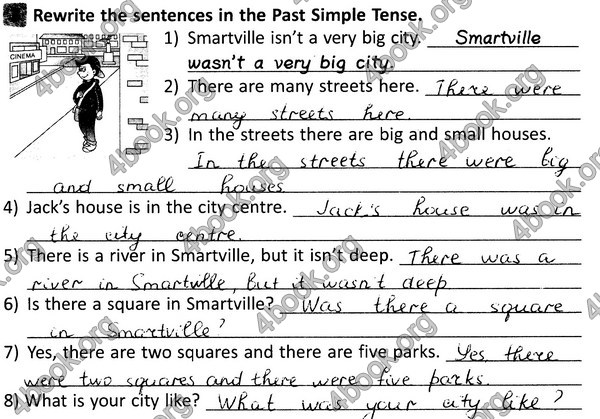 Rewrite the sentences in the Past Simple Tense.
CINEMA
1) Smartville isn't a very big city. Smartville
wasn't a very big city.
2) There are many streets here. There were
many streets here.
3) In the streets there are big and small houses.
In the streets there were big
and small houses
4) Jack's house is in the city centre. Jack's house was in
the city centre.
5) There is a river in Smartville, but it isn't deep. There was a
river in Smartville, but it wasn't deep
6) Is there a square in Smartville? Was there a square
in Smartville?
7) Yes, there are two squares and there are five parks. Yes, there
were two squares and there were five parks.
8) What is your city like? What was your city like?
4book.org
4book.org
4book.org
4book.org
4book.org
4book.org
4book.org
4book.org